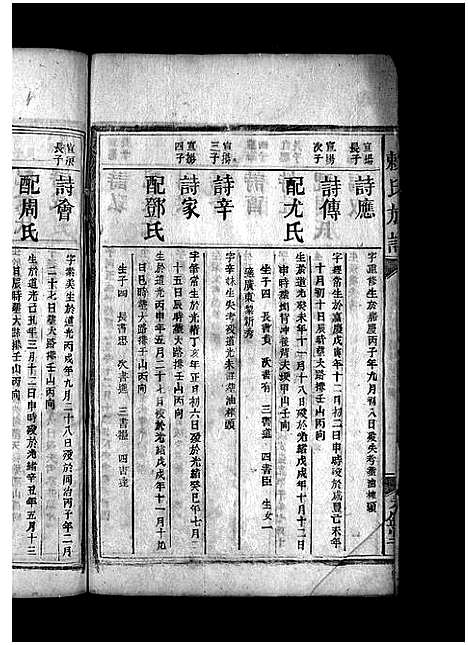 賴氏族譜
宣揚長子
詩應
字重修生於嘉慶丙子年九月初八日歿失考葬油棟頭
宣揚次子
詩傳
字經常生於嘉慶戊寅年十二月初二日申時歿於咸豐己未年
十月初十日辰時葬大路排壬山丙向
配尤氏
生於道光癸未年十一月十八日歿於光緒戊戌年十月十二日
申時葬
山壬向
生子四 長書貴 次書有 三書道 四書臣 生女一
適廣東葉新秀
宣揚三子
詩辛
字辛妹生失考歿道光未訂葬油棟頭
宣揚四子
詩家
字榮常生於光緒丁亥年正月初六日歿於光緒癸巳年七月二
十五日辰時葬大路排壬山丙向
配鄧氏
生於道光丙申年五月二十七日歿於光緒戊戌年十一月十九
日巳時葬大路排壬山丙向
生子四 長書忠 次書進 三書 四書達
宣 長子
詩會
字 美生於道光丙戌年九月二十八日歿於同治丙子年二月
二十七日葬大路排壬山丙向
配周氏
生於道光己丑年三月十二日申時歿於光緒辛丑年五月十三
日辰時葬大路排壬山丙向